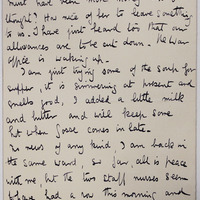 must had been more money than
thought? How nice of her to leave something
to us. I have just heard too that our
allowances are to be cut down. The War
Office is waking up.
I am just trying some of the soup for
supper, it is simmering at present and
smells good, I added a little milk
and butter and will keep some
hot when Josse comes in late.
No news of any kind, I am back in
the same ward, so far, all is peace
with me, but the two staff nurses seem
to have had a row this morning and